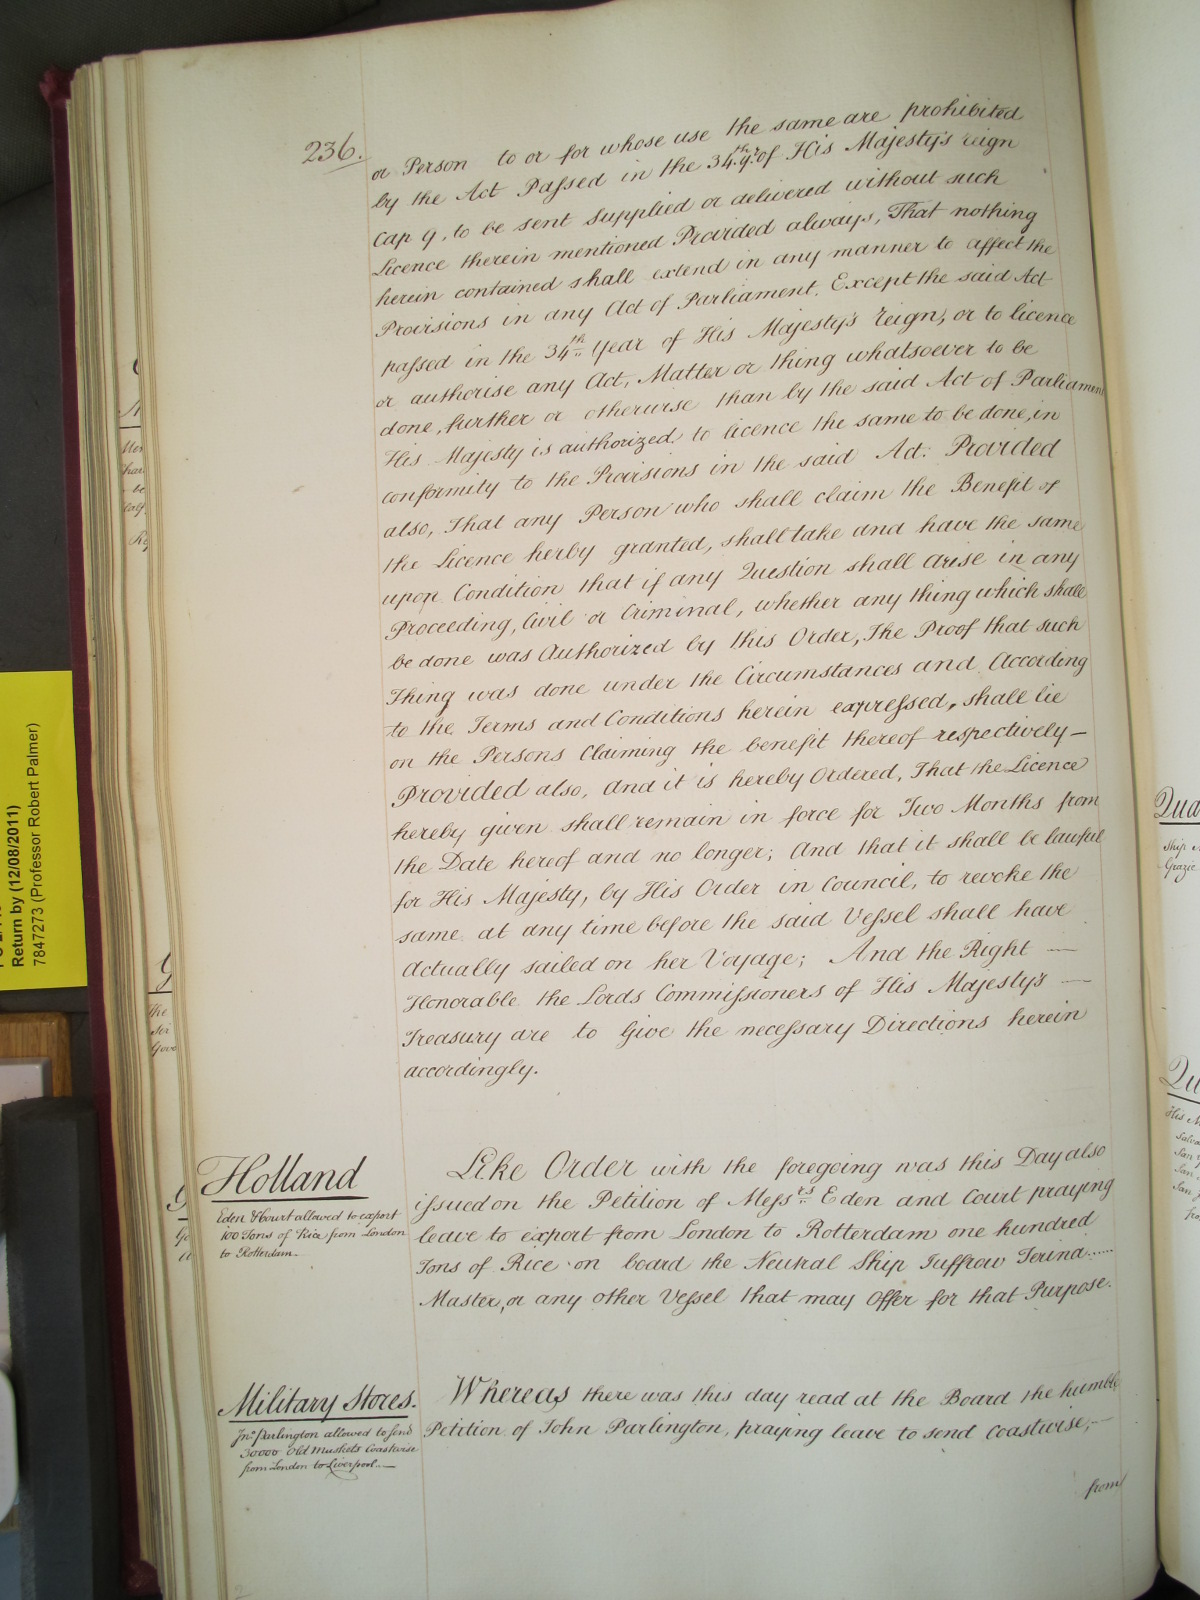 236.
or Person to or for whose use the same are prohibited
by the Act Passed in the 34th yr. of His Majesty's reign
Cap 9, to be sent supplied or delivered without such
Licence therein mentioned Provided always, That nothing
herein contained shall extend in any manner to affect the
Provisions in any Act of Parliament, Except the said Act
passed in the 34th Year of His Majesty's reign, or to licence
or authorise any Act, Matter or thing whatsoever to be
done, further or otherwise than by the said Act of Parliament
His Majesty is authorized to licence the same to be done, in
conformity to the Provisions in the said Act. Provided
also, That any Person who shall claim the Benefit of
the Licence herby granted, shall take and have the same
upon Condition that if any Question shall arise in any
Proceeding, Civil or Criminal, whether any thing which shall
be done was Authorized by this Order, The Proof that such
Thing was done under the Circumstances and According
to the Terms and Conditions herein expressed, shall lie
on the Persons Claiming the benefit thereof respectively —
Provided also, and it is hereby Ordered, That the Licence
hereby given shall remain in force for Two Months from
the Date hereof and no longer; And that it shall be lawful
for His Majesty, by His Order in Council, to revoke the
same at any time before the said Vessel shall have
Actually sailed on her Voyage; And the Right —
Honorable the Lords Commissioners of His Majesty's —
Treasury are to Give the necessary Directions herein
accordingly.
Holland
Eden & Court allowed to export
100 Tons of Rice from London
to Rotterdam.
Like Order with the foregoing was this Day also
issued on the Petition of Messrs Eden and Court praying
leave to export from London to Rotterdam one hundred
Tons of Rice on board the Neutral Ship Juffrow Terina......
Master, or any other Vessel that may Offer for that Purpose.
Military Stores.
Jno Parlington allowed to send
30000 Old Muskets Coastwise
from London to Liverpool.—
Whereas there was this day read at the Board the humble
Petition of John Parlington, praying leave to send Coastwise,—
from
Return by (12/08/2011)
7847273 (Professor Robert Palmer)